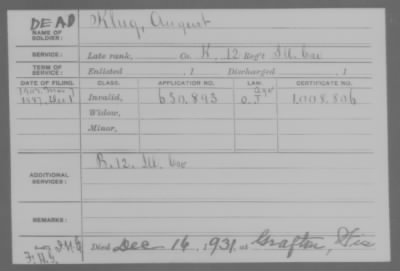 DEAD
NAME OF SOLDIER: Klug, August
SERVICE: Late rank, Co. K, 12 Reg't Ill. Cav
TERM OF SERVICE: Enlisted , 1 Discharged , 1
DATE OF FILING. CLASS. APPLICATION NO. LAW. CERTIFICATE NO.
Invalid, 650.893 1,008.806
Widow,
Minor,
ADDITIONAL SERVICES: B. 12. Ill. Cav
REMARKS:
Died Dec 16, 1931, at Grafton, Wis